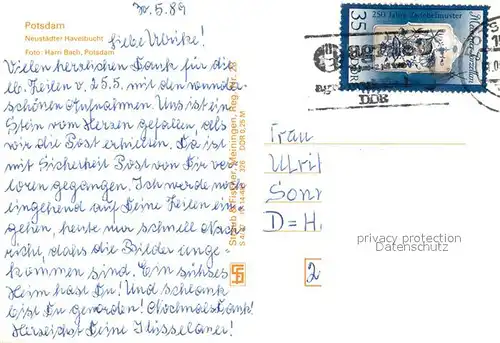 30.5.89
Potsdam
Neustädter Havelbucht
Foto: Harri Bach, Potsdam
Liebe Ulrike!
Vielen herzlichen Dank für die
lb. Zeilen v. 25.5. mit den wunder-
schönen Aufnahmen. Uns ist ein
Stein vom Herzen gefallen, als
wir die Post erhielten. Da ist
mit Sicherheit Post von Dir ver-
loren gegangen. Ich werde noch
eingehend auf Deine Zeilen einge-
hen, heute nur schnell Nach-
richt, dass die Bilder ange-
kommen sind. Ein süßes
Heim hast Du! Und schlank
bist Du geworden! Nochmals Dank!
Herzlichst Deine
Straub & Fischer, Meiningen,
DDR 0,25 M
250 Jahre Zwiebelmuster
35
DDR
Meissener Porzellan
DDR
Frau
Ulri
Sonn
D=H
2
privacy protection
Datenschutz